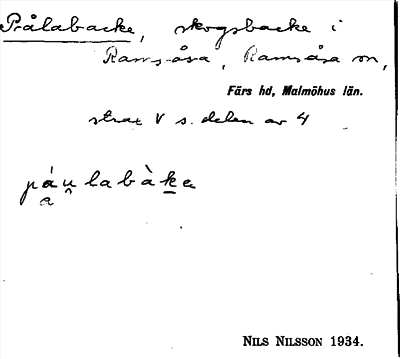 Prålabacke, skogsbacke i
Ramsåsa, Ramsåsa sn,
Färs hd, Malmöhus län.
strax V s. delen av 4
páu̯labàka
a
NILS NILSSON 1934.